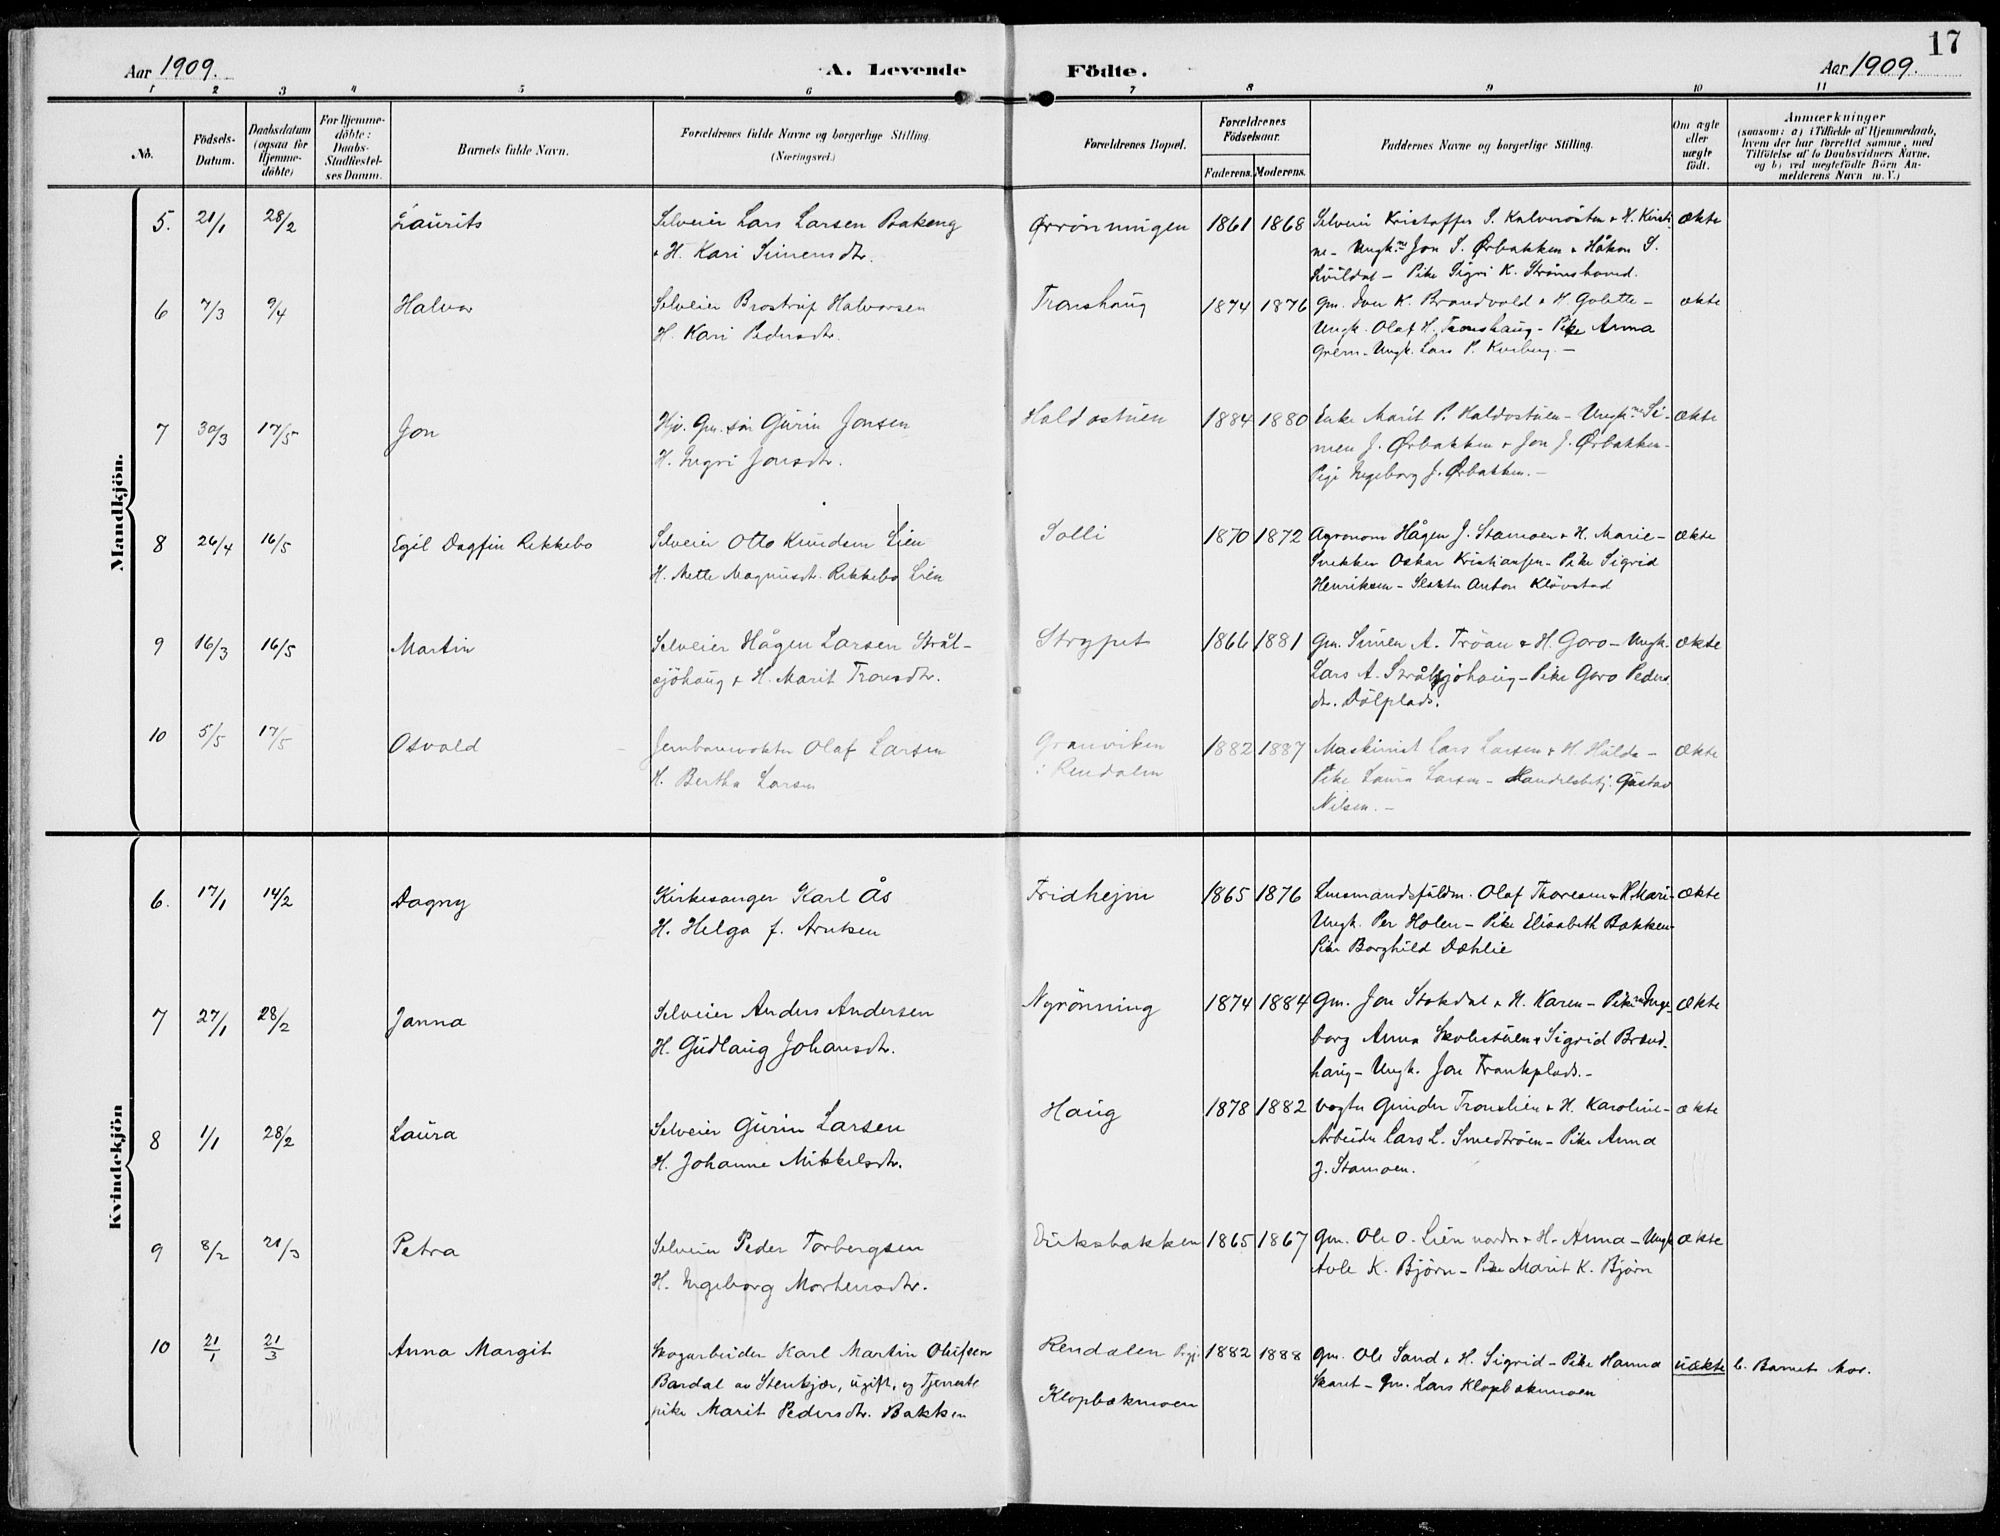 17
Aar 1909.
A. Levende Födte.
Aar 1909.
1 2 3 4 5 6 7 8 9 10 11
No.
Födsels-Datum.
Daabsdatum (ogsaa for Hjemme-döbte)
For Hjemme-döbte: Daabs-Stadfæstel-ses Datum.
Barnets fulde Navn.
Forældrenes fulde Navne og borgerlige Stilling. (Næringsvei.)
Forældrenes Bopæl.
Forældrenes Födselsaar.
Faderens. Moderens.
Faddernes Navne og borgerlige Stilling.
Om ægte eller uægte födt.
Anmærkninger
(saasom: a) i Tilfælde af Hjemmedaab, hvem der har forrettet samme, med Tilföielse af to Daabsvidners Navne, og b) ved uægtefödte Börn An-melderens Navn m. V.)
Mandkjön.
5. 21/1 28/2 Laurits
Selveier Lars Larsen Bakeng
& H. Kari Simensdtr.
Ørrönningen 1861 1868
Selveier Kristoffer S. Kalverösten & H. Kirsti-
ne- Ungk.ne Jon S. Ørbakken & Håkon S.
Kvildal - Pike Sigri K. Strömshoved.
ækte
6 7/3 9/4 Halvor
Selveier Brostrup Halvorsen
H. Kari Pedersdtr.
Tronshaug 1874 1876
Gm. Iver K. Brandvold & H. Golette -
Ungk. Olaf H. Tronshaug - Pike Anna
Grem - Ungk. Lars P. Kveberg. -
ækte
7 30/3 17/5 Jon
Hjv. Gm. sön Gürin Jonsen
H. Ingri Jonsdtr.
Haldostuen 1884 1880
Enke Marit P. Haldostuen - Ungk.ne Si-
men J. Ørbakken & Jon J. Ørbakken-
Pige Ingeborg J. Ørbakken. -
ækte
8 26/4 16/5 Egil Dagfin Rekkebo
Selveier Otto Knudsen Lien
H. Mette Magnusdtr. Rekkebo Lien
Solli 1870 1872
Agronom Hågen J. Stamoen & H. Marie -
Snekker Oskar Kristiansen - Pike Sigrid
Henriksen - Slakter Anton Klövstad
ækte
9 16/3 16/5 Martin
Selveier Hågen Larsen Strål-
sjöhaug & H. Marit Tronsdtr.
Strypet 1866 1881
Gm. Simen A. Tröan & H. Goro - Ungk.
Lars A. Strålsjöhaug - Pike Goro Peders
dtr. Dölplads.
ækte
10 5/5 17/5 Osvald
Jernbanevokter Olaf Larsen
H. Bertha Larsen
Granviken
i Rendalen 1882 1887
Maskinist Lars Larsen & H. Hulda -
Pike Laura Larsen - Handelsbetj. Gustav
Nilsen. -
ækte
Kvindekjön
6. 17/1 14/2 Dagny
Kirkesanger Karl Ås
H. Helga f. Arntsen
Fridhejm 1865 1876
Lensmandsfuldm. Olaf Thoresen & H. Mari-
Ungk. Per Holen - Pike Elisabeth Bakken-
Pike Borghild Dæhlie
ækte
7 27/1 28/2 Janna
Selveier Anders Andersen
H. Gudlaug Johansdtr.
Nyrönning 1874 1884
Gm. Jon Stokdal & H. Karen - Pikene Inge-
borg Anna Skolestuen & Sigrid Brænd-
haug - Ungk. Jon Trankplads. -
ækte
8 1/1 28/2 Laura
Selveier Gürin Larsen
H. Johanne Mikkelsdtr.
Haug 1878 1882
Vogter Gunder Tronslien & H. Karoline -
Arbeider Lars L. Smedtröen - Pike Anna
J. Stamoen.
ækte
9 8/2 21/3 Petra
Selveier Peder Torbergsen
H. Ingeborg Mortensdtr.
Eriksbakken 1865 1867
Gm. Ole O. Lien nordre & H. Anna - Ungk
Avle K. Björn - Pike Marit K. Björn
ækte
10 21/1 21/3 Anna Margit
Skogarbeider Karl Martin Olufsen
Bardal av Stenkjær, ugift, og tjeneste
pike Marit Pedersdtr. Bakken
Rendalen
Klopbækmoen 1882 1888
Gm. Ole Sand & H. Sigrid - Pike Hanna
Skaret - Gm. Lars Klopbækmoen
uækte
b. Barnets Mor.